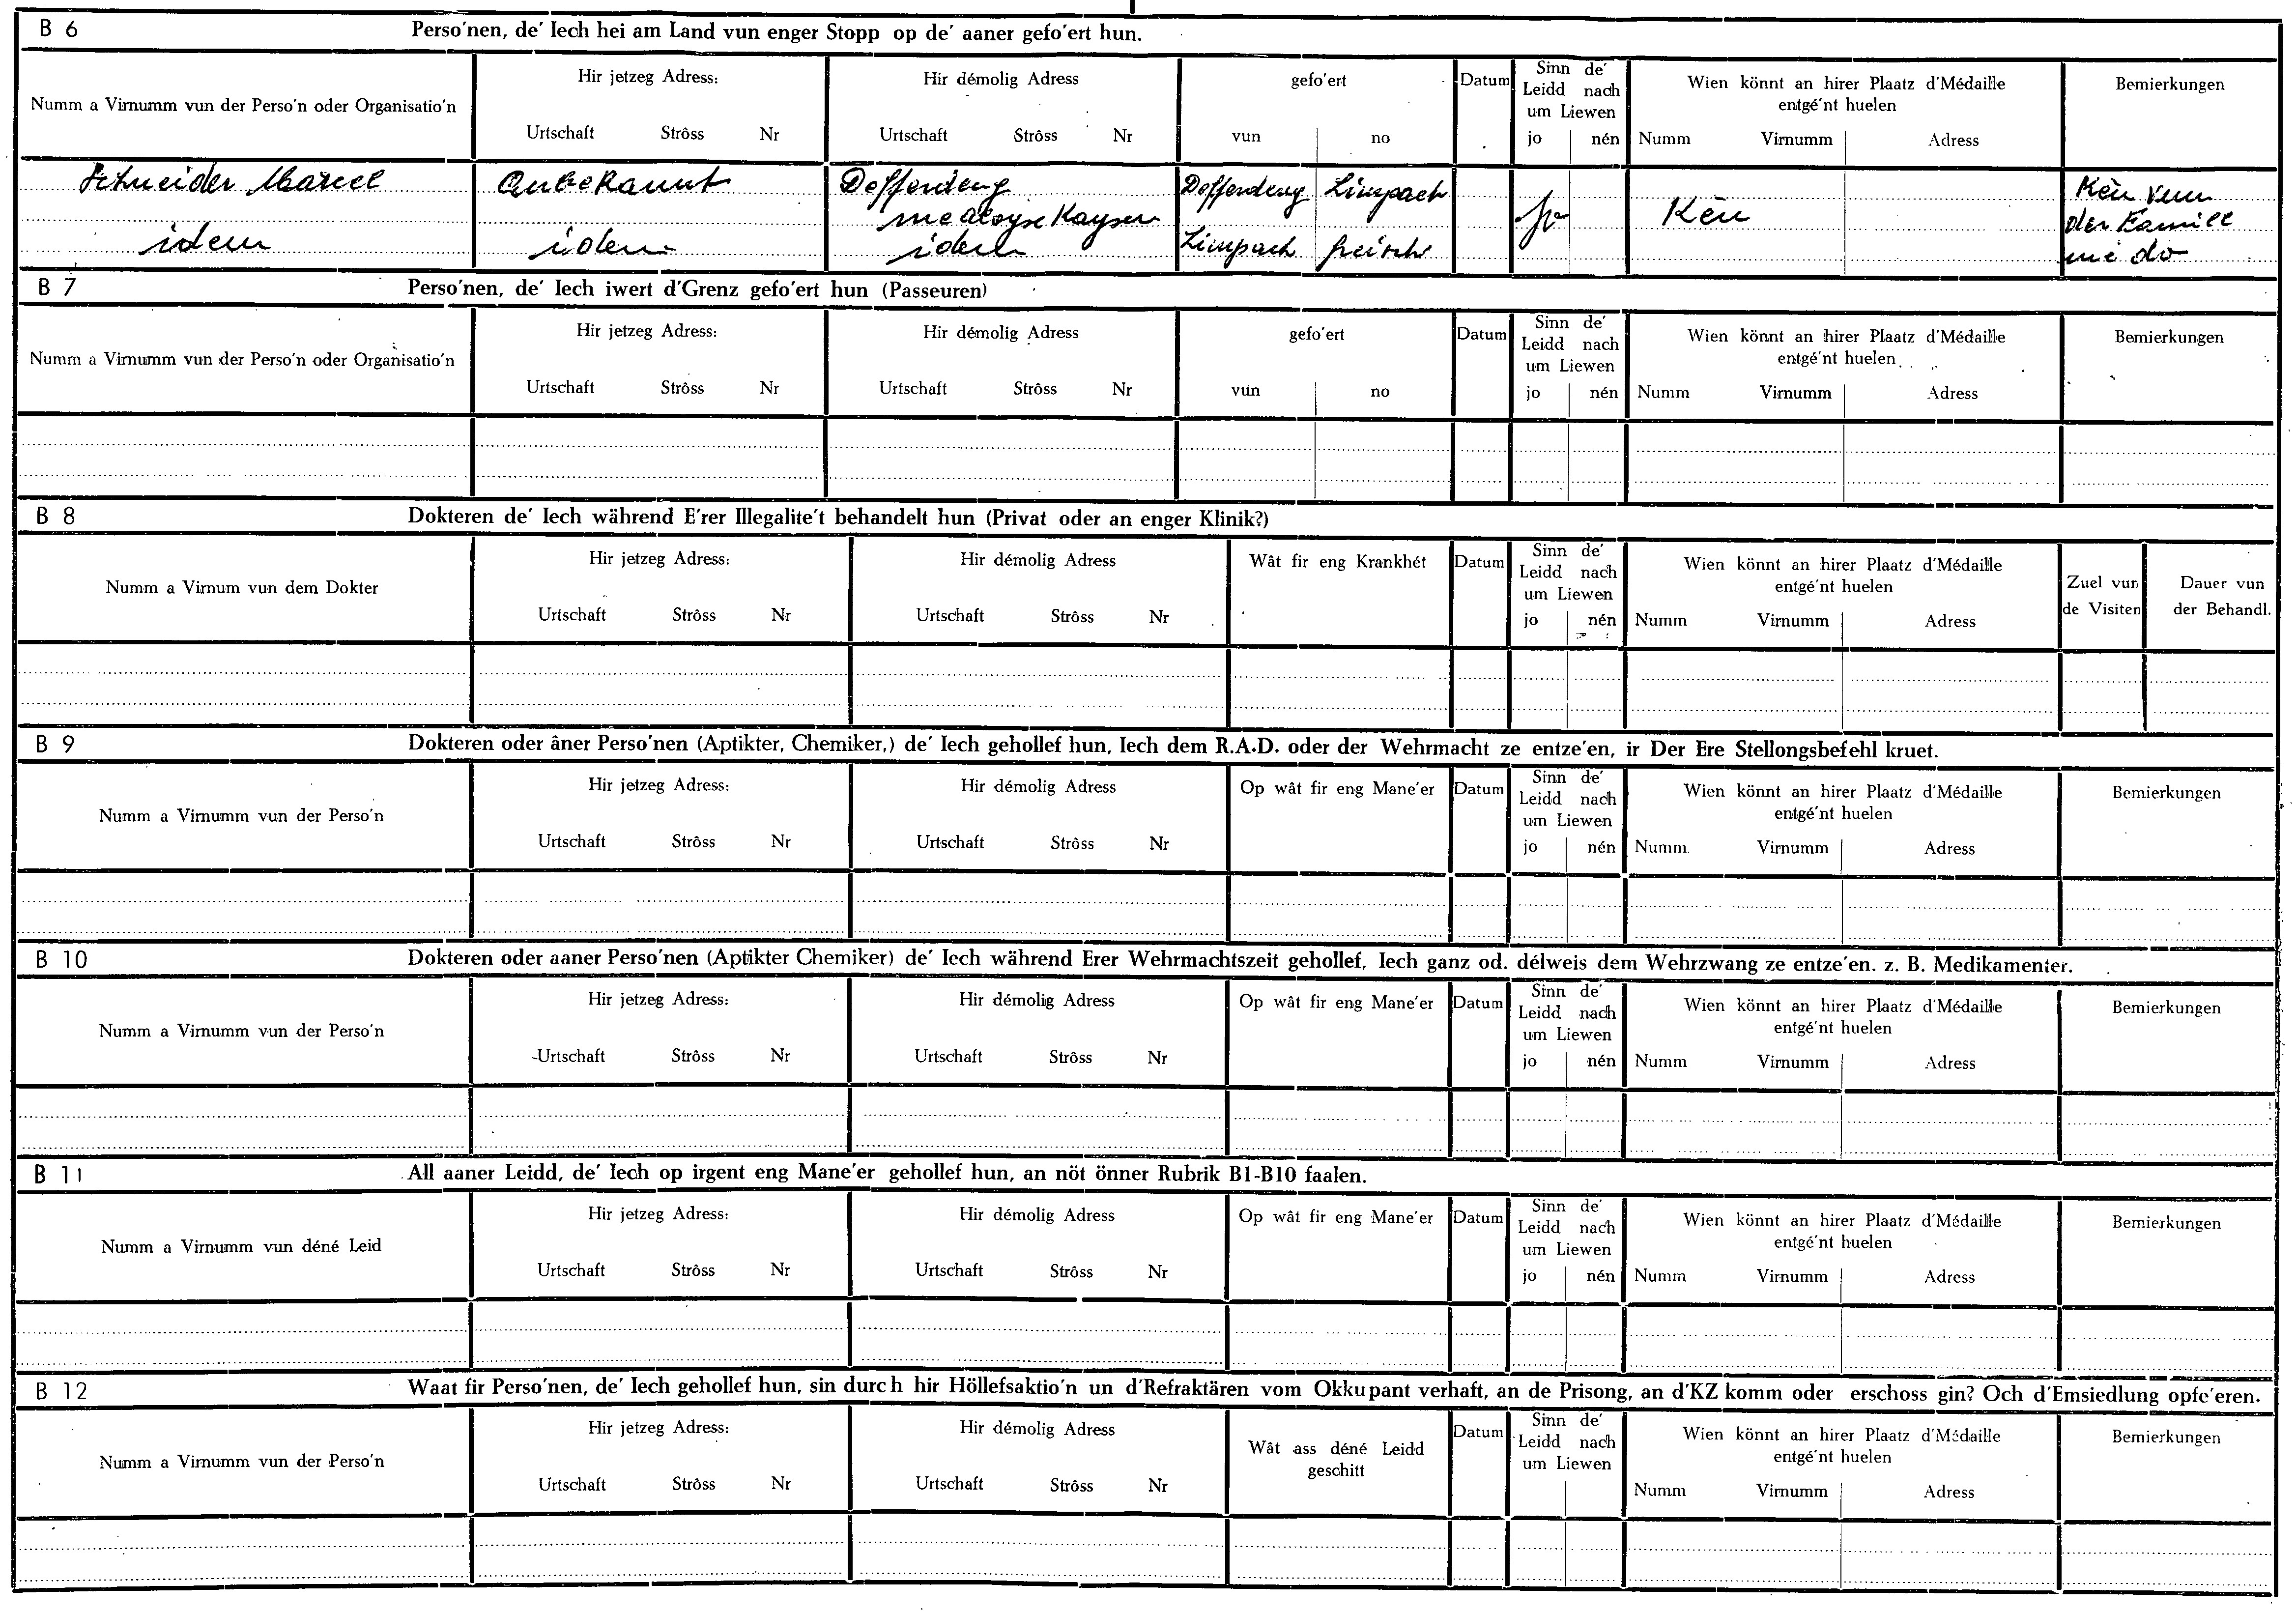 B 6 Perso'nen, de' Iech hei am Land vun enger Stopp op de' aaner gefo'ert hun.
Numm a Virnumm vun der Perso'n oder Organisatio'n
Hir jetzeg Adress:
Urtschaft Strôss Nr
Hir démolig Adress
Urtschaft Strôss Nr
gefo'ert
vun no
Datum
Sinn de'
Leidd nach
um Liewen
jo nén
Wien könnt an hirer Plaatz d'Médaille
entgé'nt huelen
Numm Virnumm Adress
Bemierkungen
Schneider Marcel Onbekannt Deffendeng Deffendeng Limpach Kèn vun
Kayser jo Kèn der Famill
idem idem idem Limpach mé do
B 7 Perso'nen, de' Iech iwert d'Grenz gefo'ert hun (Passeuren)
Numm a Virnumm vun der Perso'n oder Organisatio'n
Hir jetzeg Adress:
Urtschaft Strôss Nr
Hir démolig Adress
Urtschaft Strôss Nr
gefo'ert
vun no
Datum
Sinn de'
Leidd nach
um Liewen
jo nén
Wien könnt an hirer Plaatz d'Médaille
entgé'nt huelen
Numm Virnumm Adress
Bemierkungen
B 8 Dokteren de' Iech während E'rer Illegalite't behandelt hun (Privat oder an enger Klinik?)
Numm a Virnum vun dem Dokter
Hir jetzeg Adress:
Urtschaft Strôss Nr
Hir démolig Adress
Urtschaft Strôss Nr
Wât fir eng Krankhét
Datum
Sinn de'
Leidd nach
um Liewen
jo nén
Wien könnt an hirer Plaatz d'Médaille
entgé'nt huelen
Numm Virnumm Adress
Zuel vun
de Visiten
Dauer vun
der Behandl.
B 9 Dokteren oder âner Perso'nen (Aptikter, Chemiker,) de' Iech gehollef hun, Iech dem R.A.D. oder der Wehrmacht ze entze'en, ir Der Ere Stellongsbefehl kruet.
Numm a Virnumm vun der Perso'n
Hir jetzeg Adress:
Urtschaft Strôss Nr
Hir démolig Adress
Urtschaft Strôss Nr
Op wât fir eng Mane'er
Datum
Sinn de'
Leidd nach
um Liewen
jo nén
Wien könnt an hirer Plaatz d'Médaille
entgé'nt huelen
Numm Virnumm Adress
Bemierkungen
B 10 Dokteren oder aaner Perso'nen (Aptikter Chemiker) de' Iech während Erer Wehrmachtszeit gehollef, Iech ganz od. délweis dem Wehrzwang ze entze'en. z. B. Medikamenter.
Numm a Virnumm vun der Perso'n
Hir jetzeg Adress:
Urtschaft Strôss Nr
Hir démolig Adress
Urtschaft Strôss Nr
Op wât fir eng Mane'er
Datum
Sinn de'
Leidd nach
um Liewen
jo nén
Wien könnt an hirer Plaatz d'Médaille
entgé'nt huelen
Numm Virnumm Adress
Bemierkungen
B 11 All aaner Leidd, de' Iech op irgent eng Mane'er gehollef hun, an nöt önner Rubrik B1-B10 faalen.
Numm a Virnumm vun déné Leid
Hir jetzeg Adress:
Urtschaft Strôss Nr
Hir démolig Adress
Urtschaft Strôss Nr
Op wât fir eng Mane'er
Datum
Sinn de'
Leidd nach
um Liewen
jo nén
Wien könnt an hirer Plaatz d'Médaille
entgé'nt huelen
Numm Virnumm Adress
Bemierkungen
B 12 Waat fir Perso'nen, de' Iech gehollef hun, sin durch hir Höllefsaktio'n un d'Refraktären vom Okkupant verhaft, an de Prisong, an d'KZ komm oder erschoss gin? Och d'Emsiedlung opfe'eren.
Numm a Virnumm vun der Perso'n
Hir jetzeg Adress:
Urtschaft Strôss Nr
Hir démolig Adress
Urtschaft Strôss Nr
Wât ass déné Leidd
geschitt
Datum
Sinn de'
Leidd nach
um Liewen
Wien könnt an hirer Plaatz d'Médaille
entgé'nt huelen
Numm Virnumm Adress
Bemierkungen